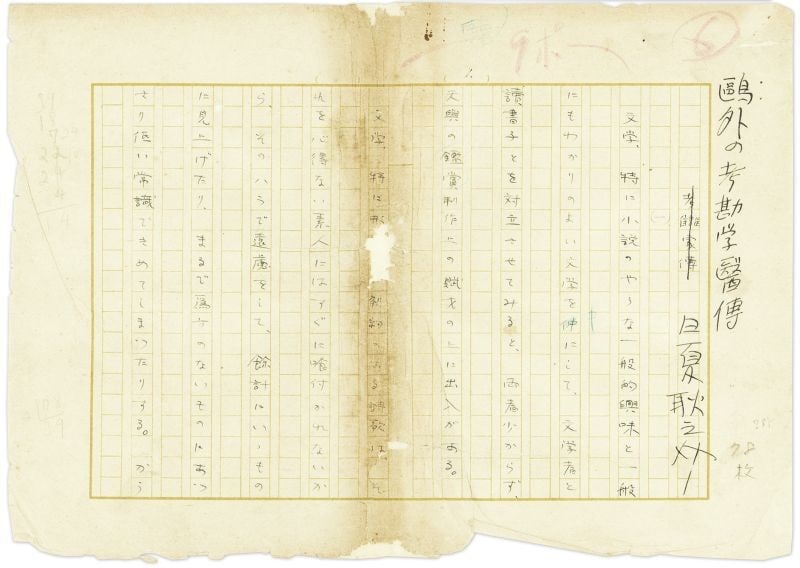 鷗外の考勘学醫傳
日夏耿之介
(一)
文学、特に小説のやうな一般的興味と一般
にもわかりのよい文学を仲にして、文学者と
讀書子とを対立させてみると、両者少からず、
文興の鑑賞制作上の
の上に出入がある。
文学、特に形
ある詩歌は、そ
れを心得ない素人にはすぐに喰付かれないか
ら、そのハうで遠慮をして、餘計にいゝもの
に見上げたり、まるで為方のないものにあつ
さり低い常識できめてしまつたりする。から
78
枚